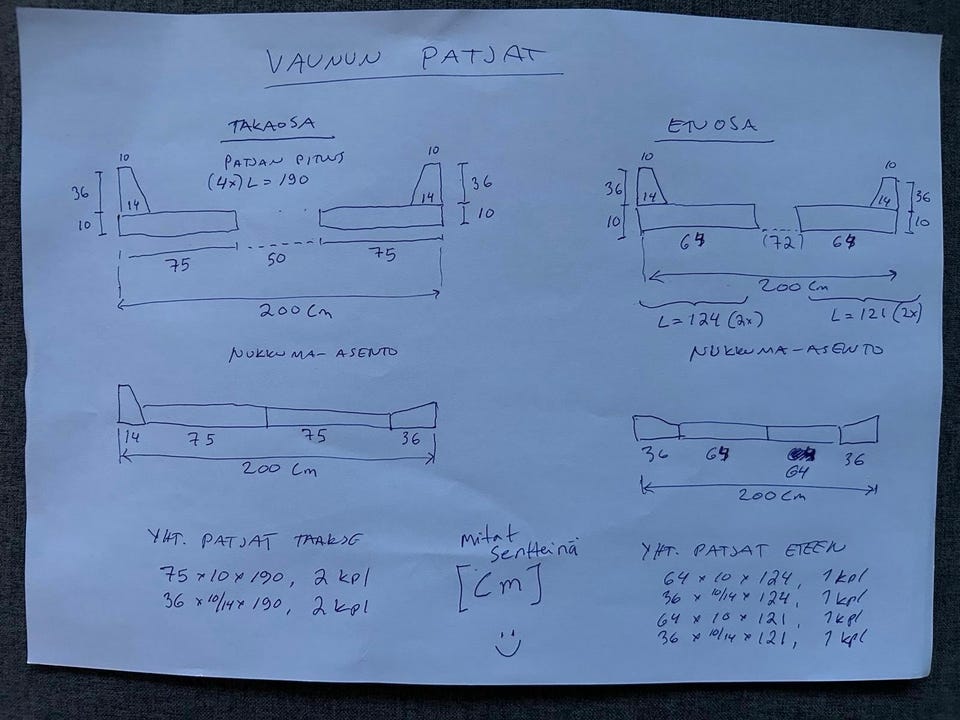 VAUNUN PATJAT
TAKAOSA
PATJAN PITUUS
(4x) L = 190
10
10
36
14
14
36
10
10
75
50
75
200 cm
NUKKUMA-ASENTO
14
75
75
36
200 cm
YHT. PATJAT TAAKSE
75 x 10 x 190, 2 kpl
36 x 10/14 x 190, 2 kpl
mitat
sentteinä
[cm]
ETUOSA
10
10
36
14
14
36
10
10
64
(72)
64
200 cm
L = 124 (2x)
L = 121 (2x)
NUKKUMA-ASENTO
36
64
64
36
200 cm
YHT. PATJAT ETEEN
64 x 10 x 124, 1 kpl
36 x 10/14 x 124, 1 kpl
64 x 10 x 121, 1 kpl
36 x 10/14 x 121, 1 kpl